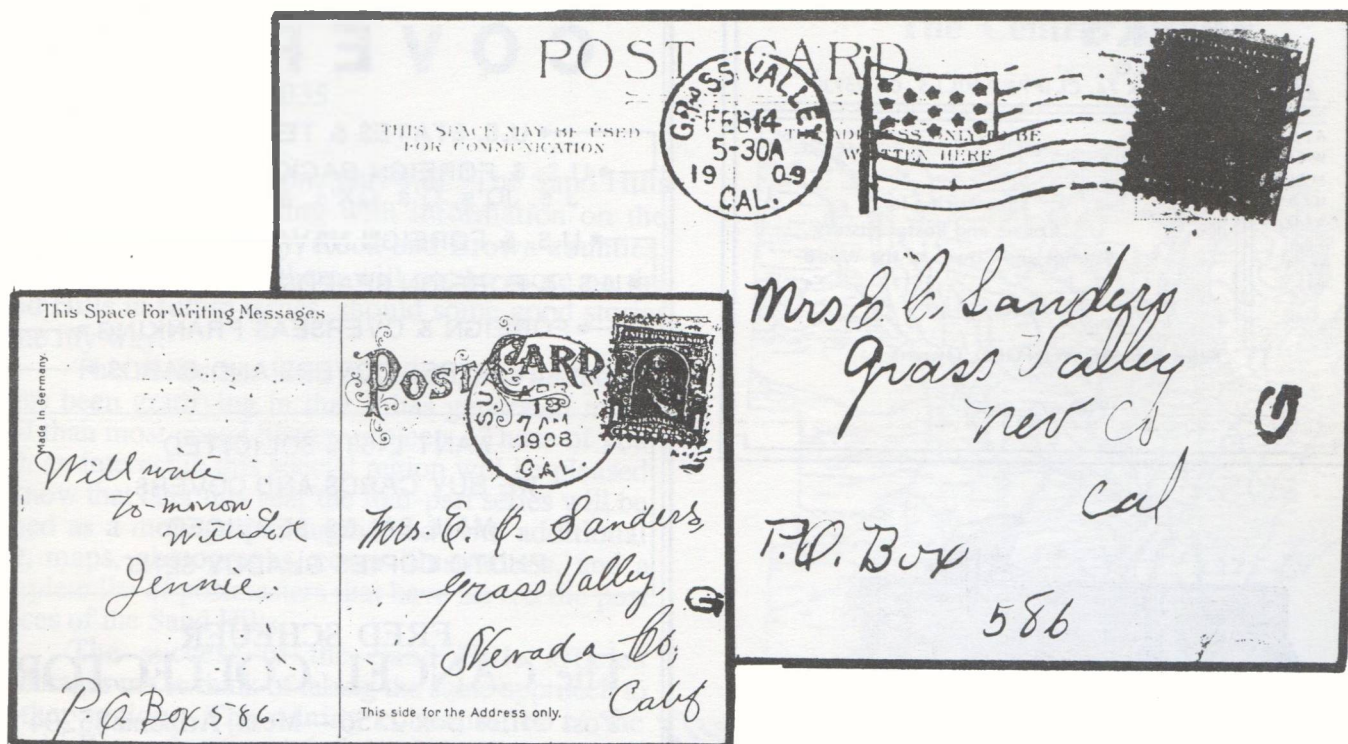 POST CARD
THIS SPACE MAY BE USED
FOR COMMUNICATION
THE ADDRESS ONLY TO BE
WRITTEN HERE
GRASS VALLEY
FEB 14
5-30A
19 09
CAL.
Mrs E. C. Sanders
Grass Valley
Nev Co
Cal
P.O. Box
586
This Space For Writing Messages
Made in Germany.
POST CARD
18
7 AM
1908
CAL.
Will write
to-morrow
Jennie.
P.O. Box 586.
Mrs. E. C. Sanders,
Grass Valley
Nevada Co,
Calif
This side for the Address only.